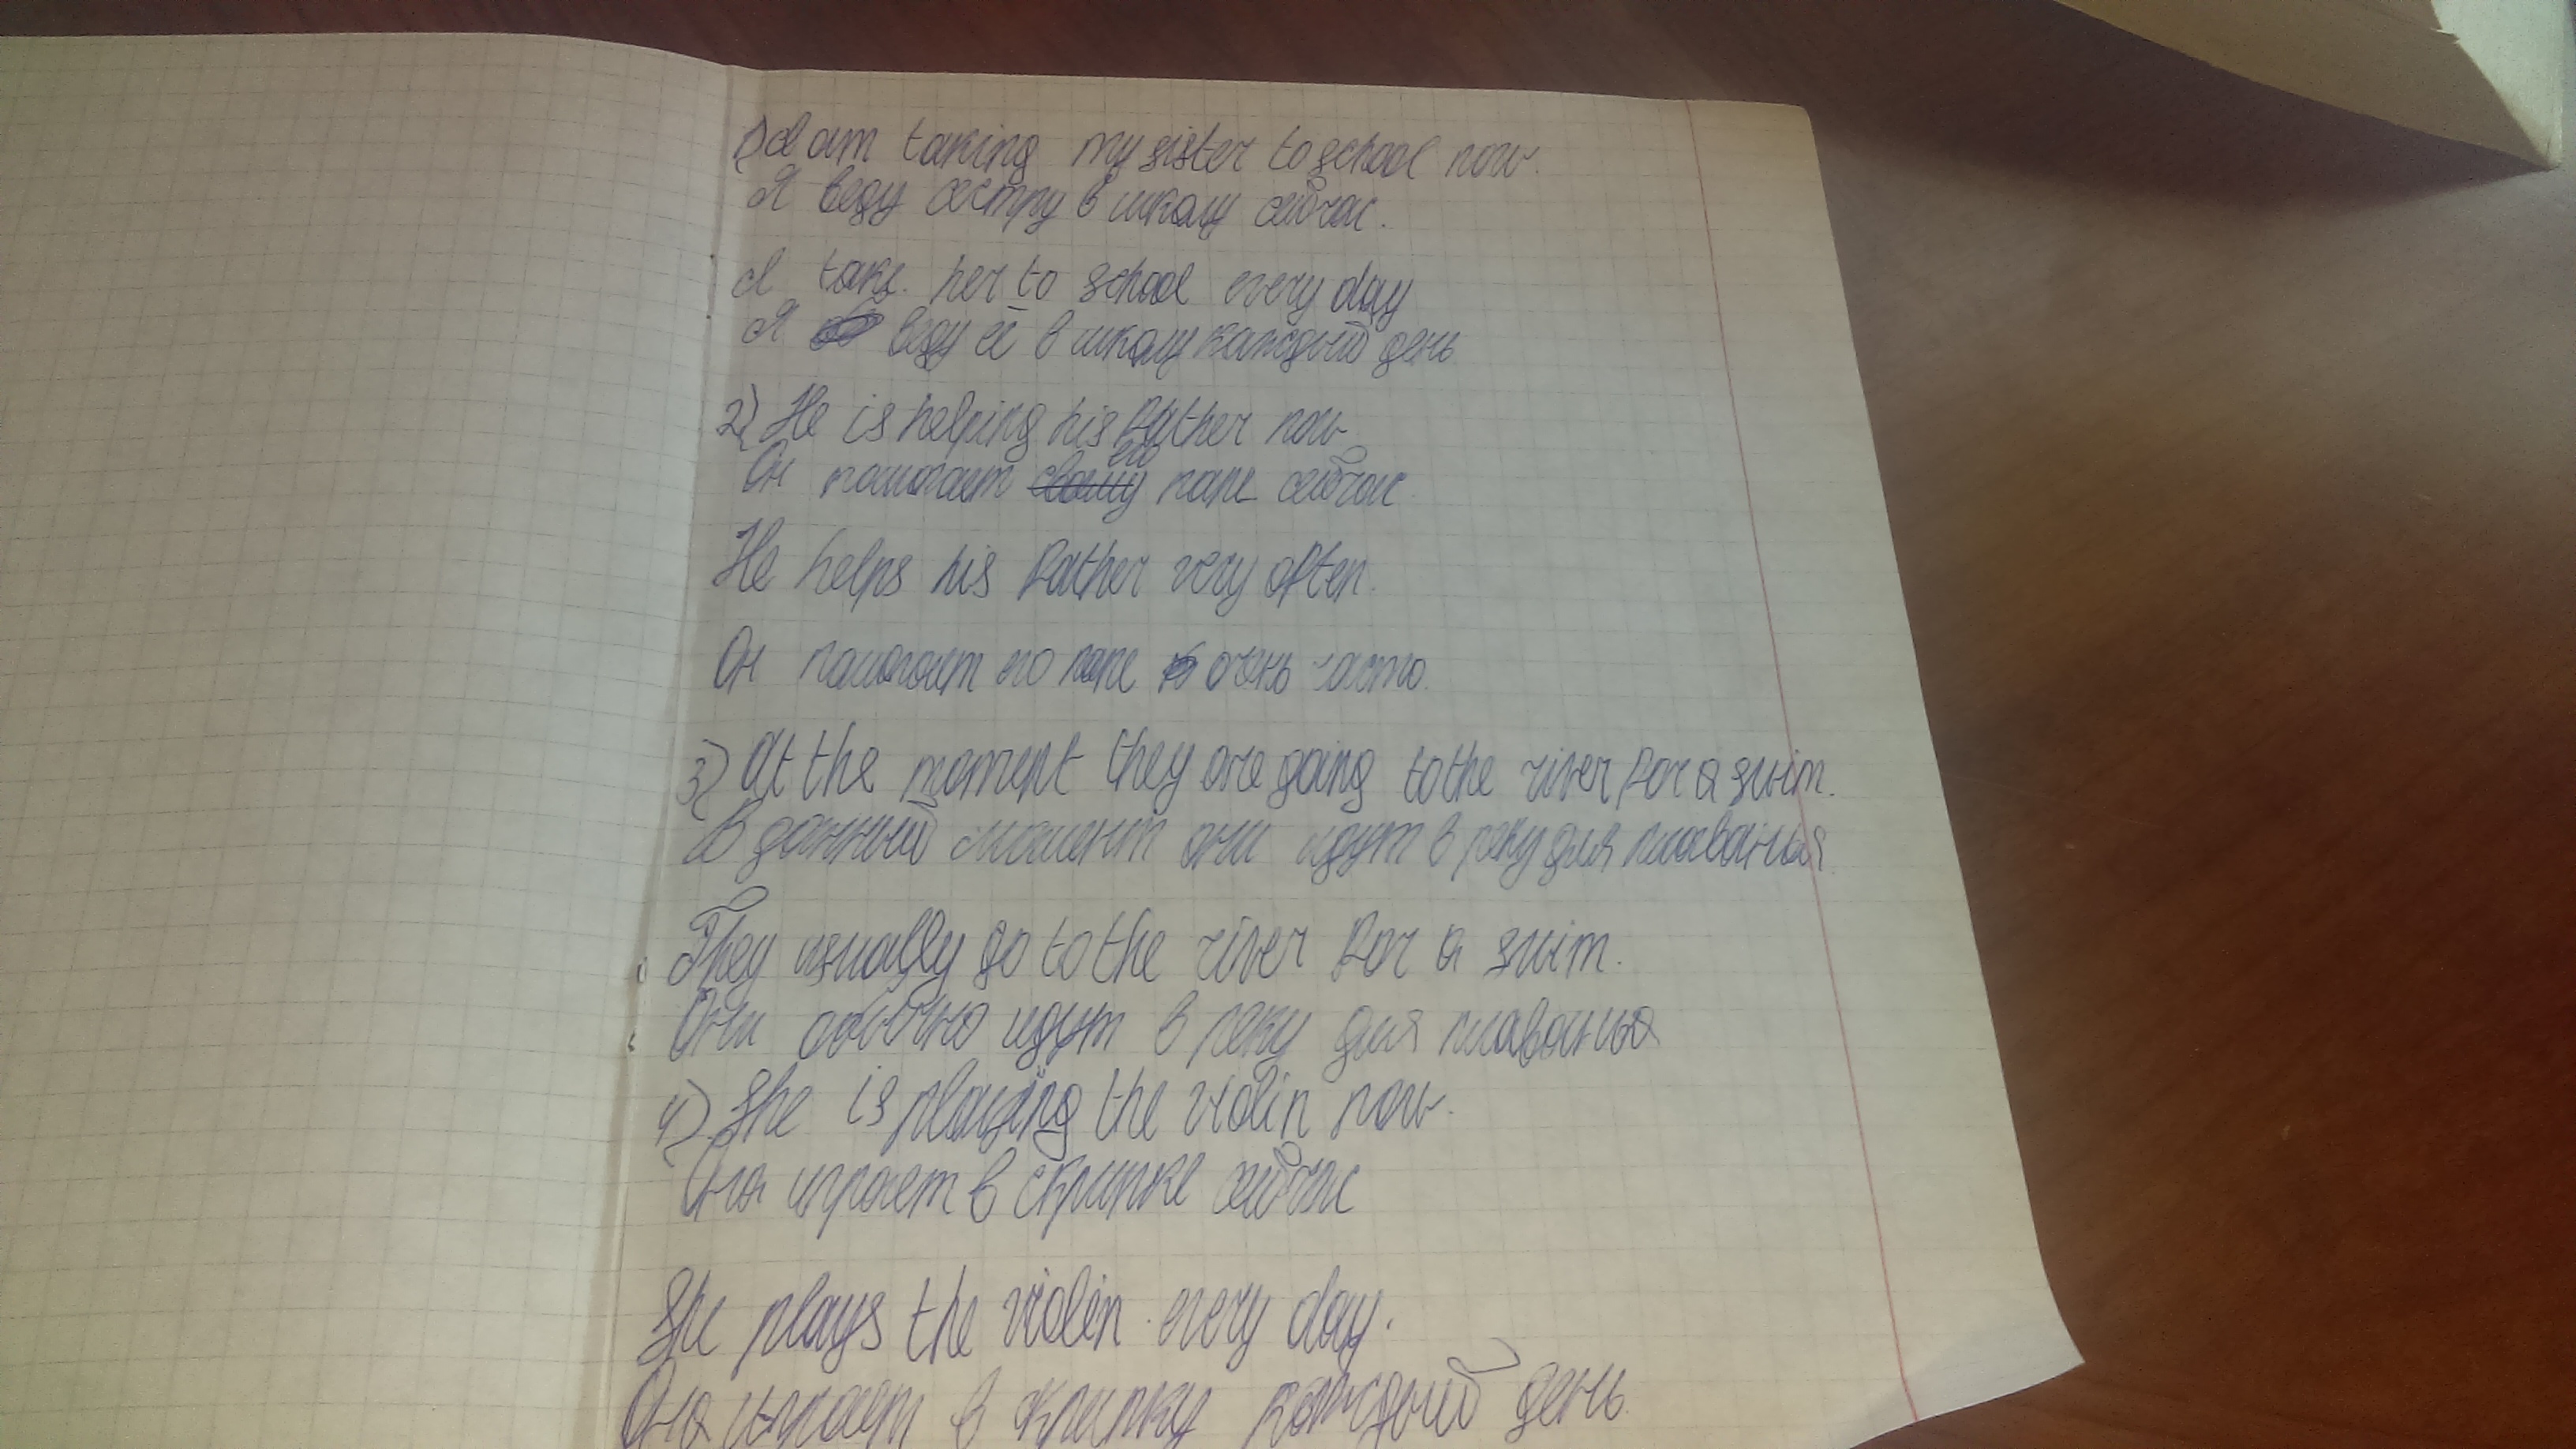 1) I am taking my sister to school now.
Я веду сестру в школу сейчас.
I take her to school every day
Я веду её в школу каждый день
2) He is helping his father now
Он помогает своему его папе сейчас.
He helps his father very often.
Он помогает его папе очень часто.
3) At the moment they are going to the river for a swim.
В данный момент они идут в реку для плаванья
They usually go to the river for a swim.
Они обычно идут в реку для плаванья
4) She is playing the violin now.
Она играет в скрипке сейчас
She plays the violin every day.
Она играет в скрипку каждый день.